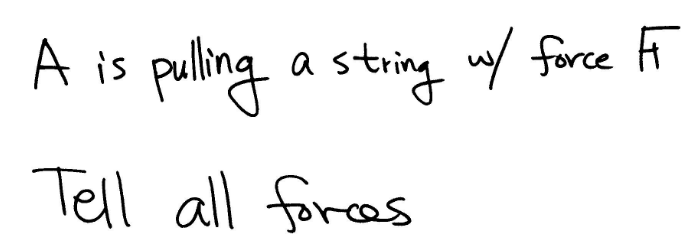 A is pulling a string w/ force F
Tell all forces